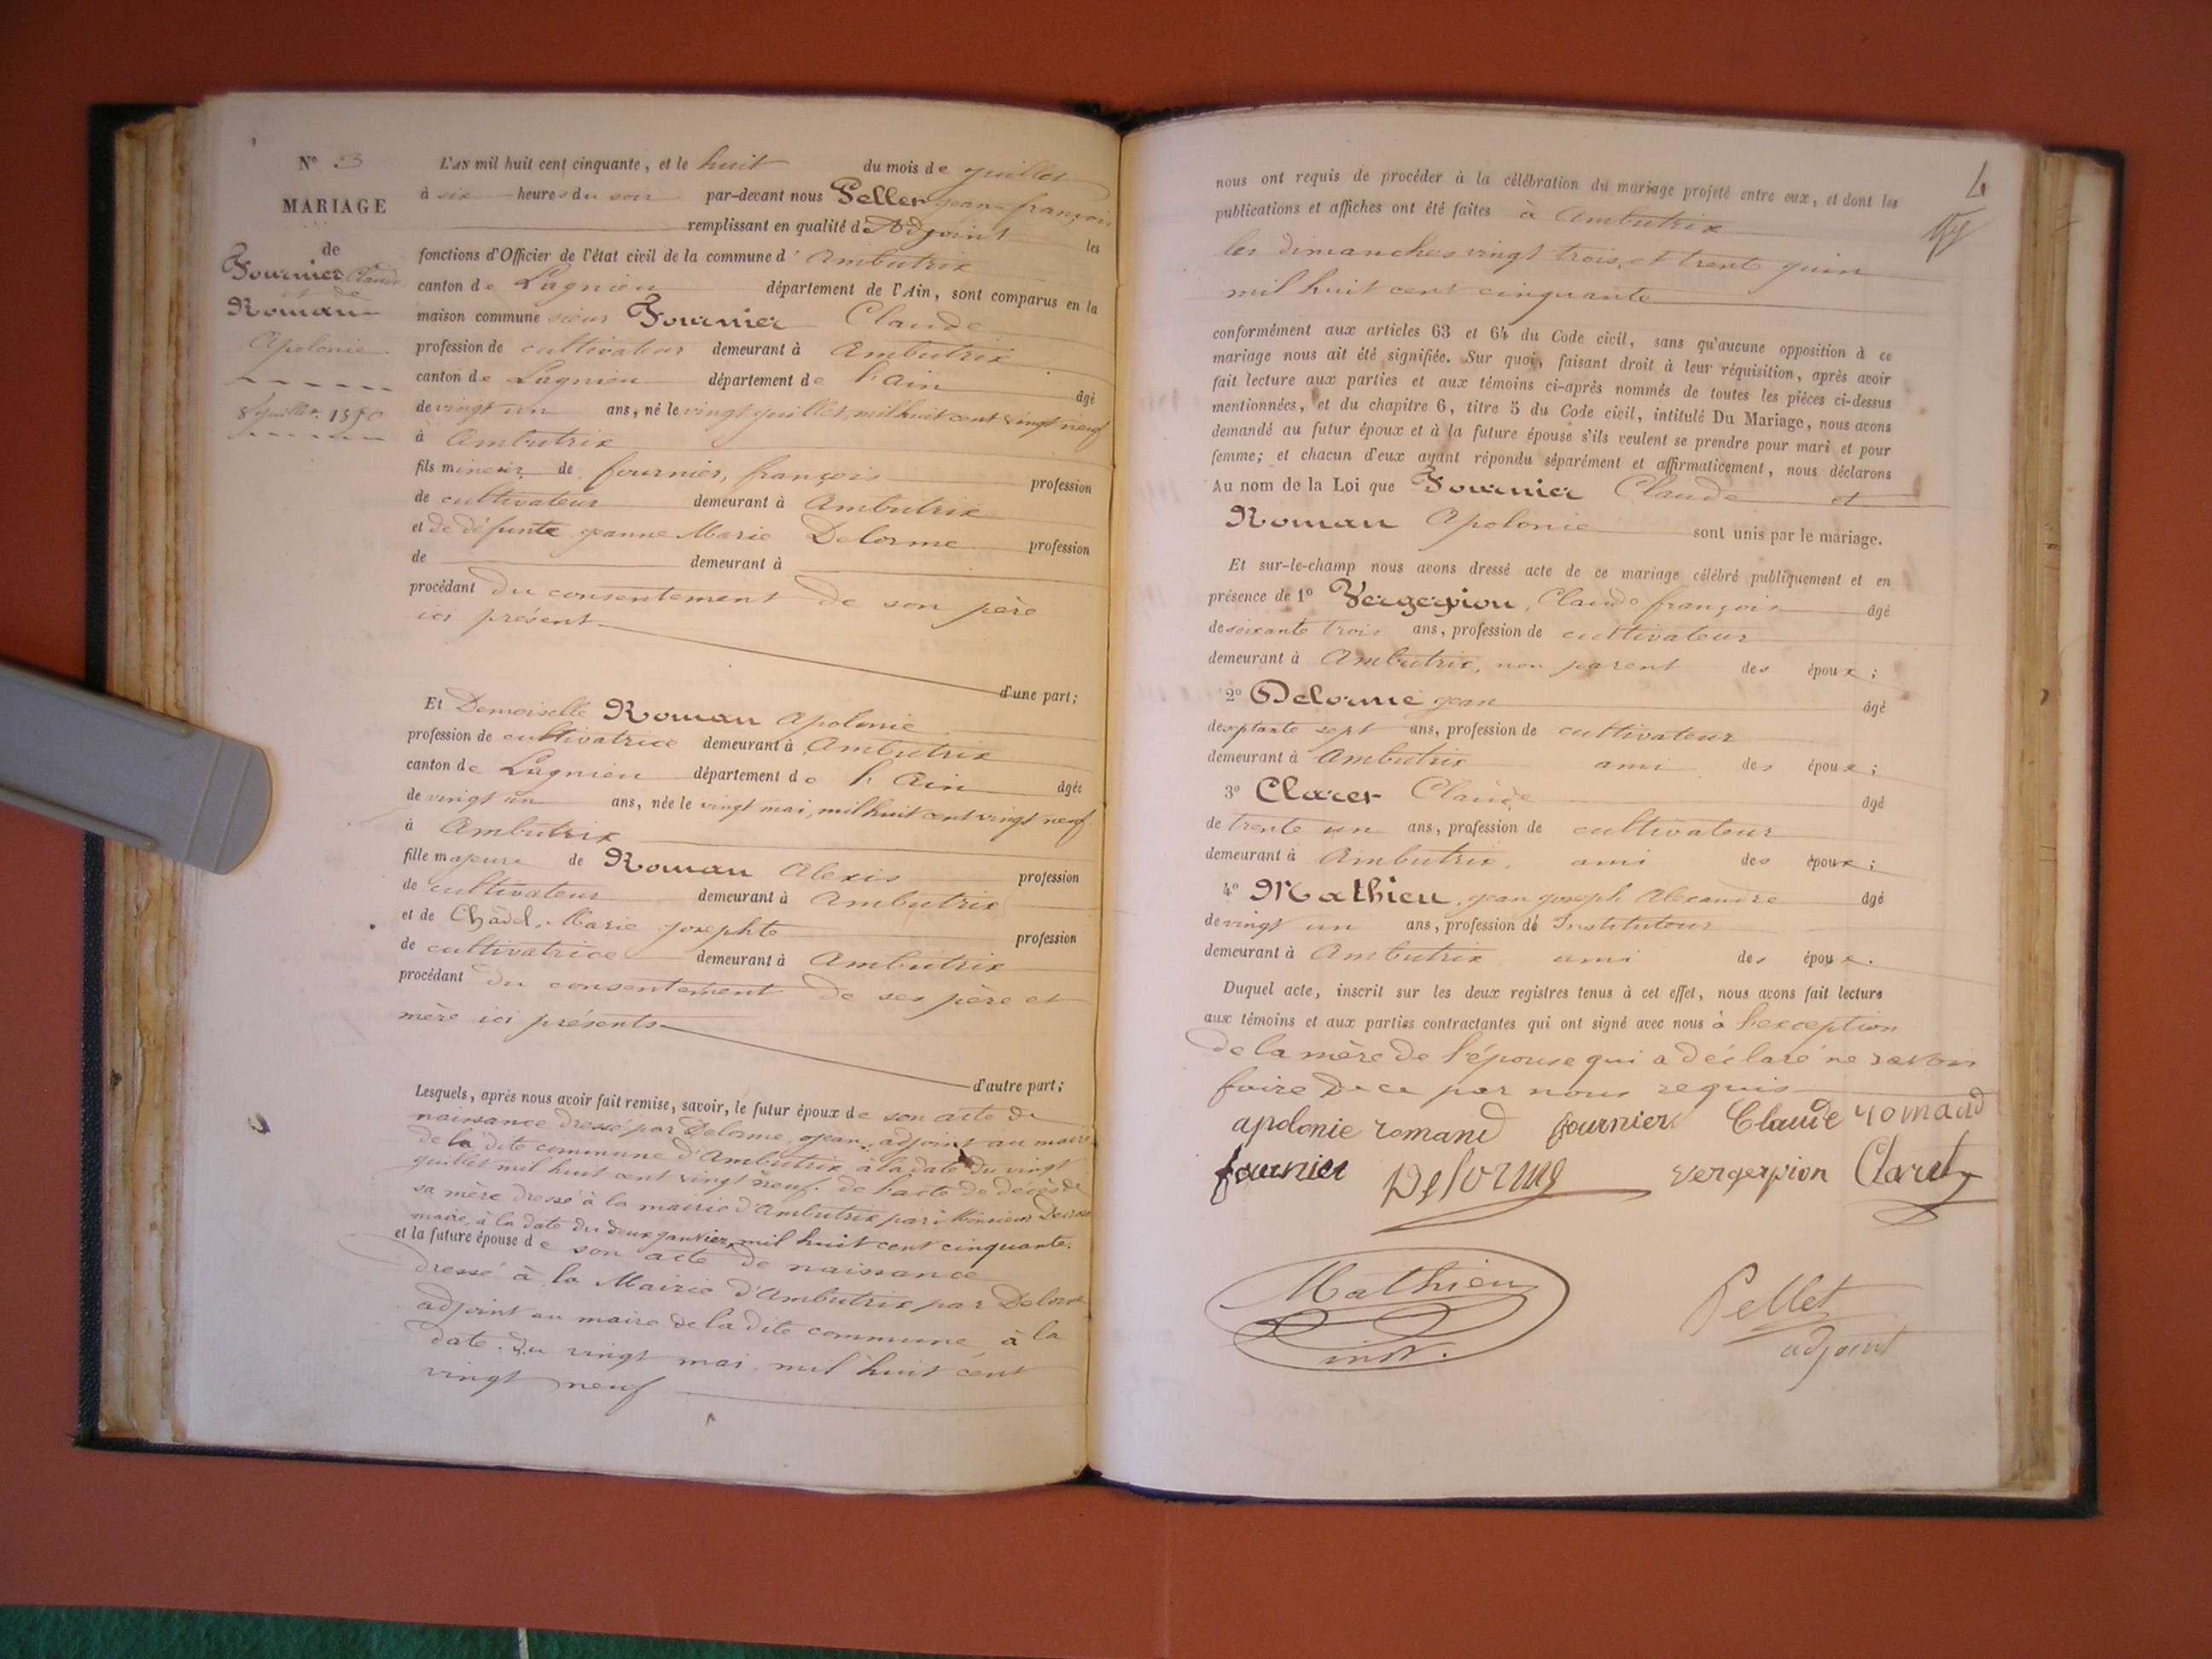 N° 3
MARIAGE
de
Fournier Claude
et de
Roman
Apolonie
8 juillet 1850
L'AN mil huit cent cinquante, et le huit du mois de juillet
à six heures du soir par-devant nous Pellet jean françois
remplissant en qualité d'Adjoint les
fonctions d'Officier de l'état civil de la commune d'Ambutrix
canton de Lagnieu département de l'Ain, sont comparus en la
maison commune sieur Fournier Claude
profession de cultivateur demeurant à Ambutrix
canton de Lagnieu département de l'Ain âgé
de vingt un ans, né le vingt juillet, mil huit cent vingt neuf
à Ambutrix
fils mineur de fournier, françois profession
de cultivateur demeurant à Ambutrix
et de défunte jeanne Marie Delorme profession
de demeurant à
procédant du consentement de son père
ici présent
d'une part;
Et Demoiselle Roman Apolonie
profession de cultivatrice demeurant à Ambutrix
canton de Lagnieu département de l'Ain âgée
de vingt un ans, née le vingt mai, mil huit cent vingt neuf
à Ambutrix
fille majeure de Roman Alexis profession
de cultivateur demeurant à Ambutrix
et de Chadel, Marie josephte profession
de cultivatrice demeurant à Ambutrix
procédant du consentement de ses père et
mère ici présents
d'autre part;
Lesquels, après nous avoir fait remise, savoir, le futur époux de son acte de
naissance dressé par Delorme, jean, adjoint au maire
de la dite commune d'Ambutrix à la date du vingt
juillet mil huit cent vingt neuf. de l'acte de décès de
sa mère dressé à la mairie d'Ambutrix par Monsieur
maire, à la date du deux janvier, mil huit cent cinquante.
et la future épouse de son acte de naissance
dressé à la Mairie d'Ambutrix par Delorme
adjoint au maire de la dite commune, à la
date du vingt mai mil huit cent
vingt neuf
4
nous ont requis de procéder à la célébration du mariage projeté entre eux, et dont les
publications et affiches ont été faites à Ambutrix
les dimanches vingt trois, et trente juin
mil huit cent cinquante
conformément aux articles 63 et 64 du Code civil, sans qu'aucune opposition à ce
mariage nous ait été signifiée. Sur quoi, faisant droit à leur réquisition, après avoir
fait lecture aux parties et aux témoins ci-après nommés de toutes les pièces ci-dessus
mentionnées, et du chapitre 6, titre 5 du Code civil, intitulé Du Mariage, nous avons
demandé au futur époux et à la future épouse s'ils veulent se prendre pour mari et pour
femme; et chacun d'eux ayant répondu séparément et affirmativement, nous déclarons
Au nom de la Loi que Fournier Claude et
Roman Apolonie sont unis par le mariage.
Et sur-le-champ nous avons dressé acte de ce mariage célébré publiquement et en
présence de 1° Vergerpion, Claude françois âgé
de soixante trois ans, profession de cultivateur
demeurant à Ambutrix, non parent des époux;
2° Delorme jean âgé
de septante sept ans, profession de cultivateur
demeurant à Ambutrix ami des époux;
3° Claret Claude âgé
de trente un ans, profession de cultivateur
demeurant à Ambutrix, ami des époux;
4° Mathieu, jean joseph Alexandre âgé
de vingt un ans, profession de Instituteur
demeurant à Ambutrix ami des époux.
Duquel acte, inscrit sur les deux registres tenus à cet effet, nous avons fait lecture
aux témoins et aux parties contractantes qui ont signé avec nous à l'exception
de la mère de l'épouse qui a déclaré ne savoir
faire de ce par nous requis
apolonie romand fournier Claude romand
fournier Delorme vergerpion Claret
Mathieu
inst.
Pellet
adjoint